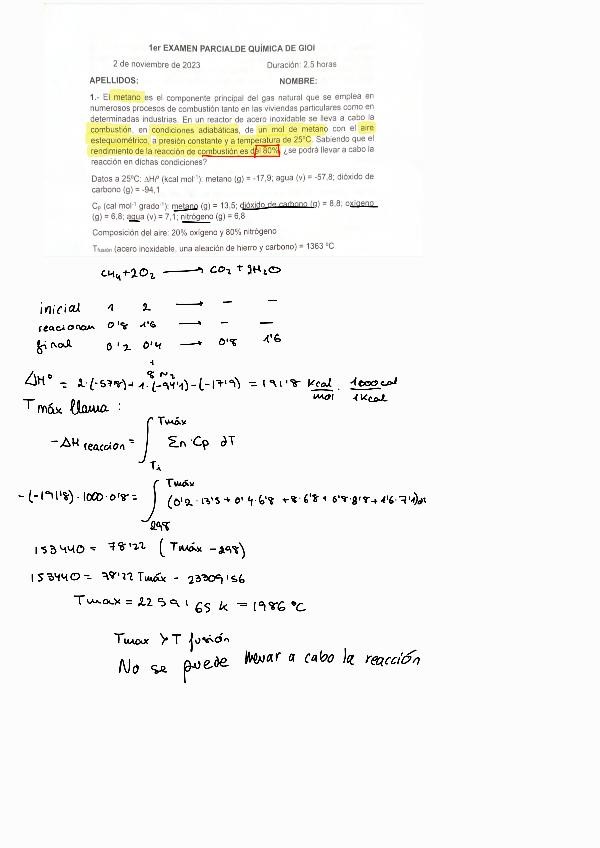 1er EXAMEN PARCIALDE QUÍMICA DE GIOI
2 de noviembre de 2023 Duración: 2.5 horas
APELLIDOS: NOMBRE:
1.- El metano es el componente principal del gas natural que se emplea en
numerosos procesos de combustión tanto en las viviendas particulares como en
determinadas industrias. En un reactor de acero inoxidable se lleva a cabo la
combustión, en condiciones adiabáticas, de un mol de metano con el aire
estequiométrico, a presión constante y a temperatura de 25ºC. Sabiendo que el
rendimiento de la reacción de combustión es del 80%, ¿se podrá llevar a cabo la
reacción en dichas condiciones?
Datos a 25ºC: ΔHfº (kcal mol⁻¹): metano (g) = -17,9; agua (v) = -57,8; dióxido de
carbono (g) = -94,1
Cp (cal mol⁻¹ grado⁻¹): metano (g) = 13,5; dióxido de carbono (g) = 8,8; oxígeno
(g) = 6,8; agua (v) = 7,1; nitrógeno (g) = 6,8
Composición del aire: 20% oxígeno y 80% nitrógeno
Tfusión (acero inoxidable, una aleación de hierro y carbono) = 1363 ºC
CH4 + 2O2 ⟶ CO2 + 2H2O
inicial 1 2 ⟶ – –
reaccionan 0'8 1'6 ⟶ – –
final 0'2 0'4 ⟶ 0'8 1'6
+
8 N2
ΔHº = 2·(-57'8)+1·(-94'1)-(-17'9) = 191'8 Kcal/mol · 1000cal/1Kcal
T máx llama :
-ΔH reaccion = ∫ Ti Tmáx Σn·Cp ∂T
-(-191'8)·1000·0'8 = ∫ 298 Tmáx (0'2·13'5 + 0'4·6'8 + 8·6'8 + 0'8·8'8 + 1'6·7'1) ∂T
153440 = 78'22 (Tmáx - 298)
153440 = 78'22 Tmáx - 23309'56
Tmax = 2259'65 K = 1986 ºC
Tmax > T fusión
No se puede llevar a cabo la reacción